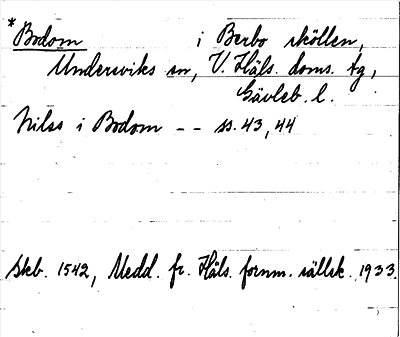 *Bodom i Berbo sköllen,
Undersviks sn, V. Häls. doms. tg,
Gävleb. l.
Nilss i Bodom -- ss. 43, 44
Skb. 1542, Medd. fr. Häls. fornm. sällsk. 1933.